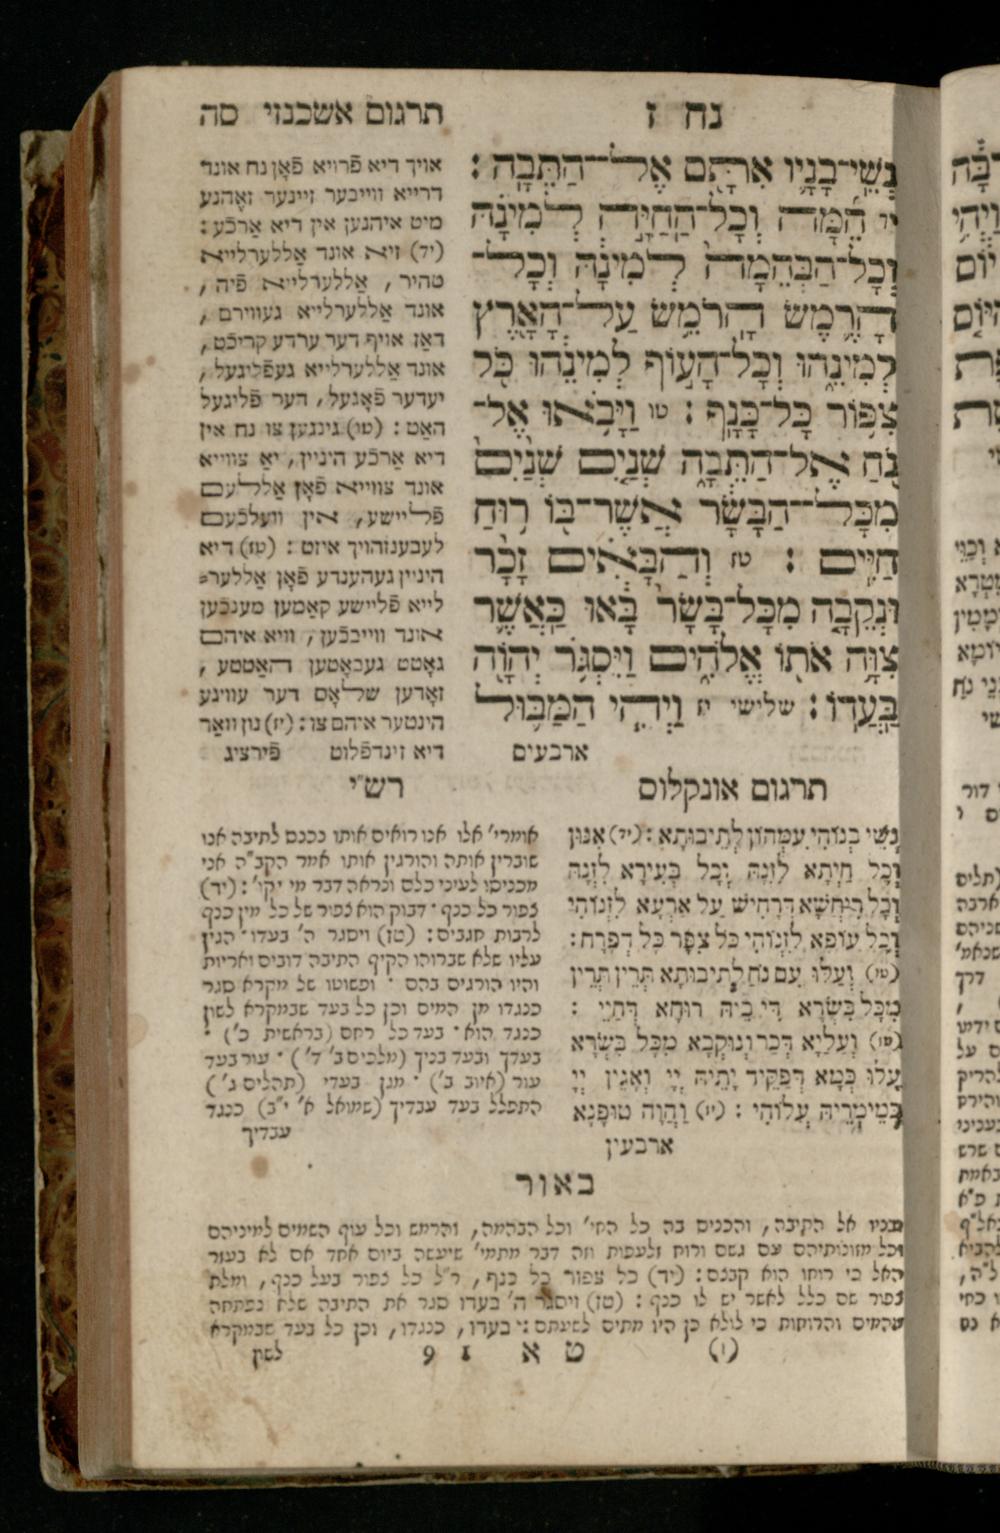 נח ז
תרגום אשכנזי סה
נְשֵׁי־בָנָ֛יו אִתָּ֖ם אֶל־הַתֵּבָֽה׃
יד הֵ֜מָּה וְכָל־הַֽחַיָּ֣ה לְמִינָ֗הּ
וְכָל־הַבְּהֵמָה֙ לְמִינָ֔הּ וְכָל־
הָרֶ֛מֶשׂ הָרֹמֵ֥שׂ עַל־הָאָ֖רֶץ
לְמִינֵ֑הוּ וְכָל־הָע֣וֹף לְמִינֵ֔הוּ כֹּ֖ל
צִפּ֥וֹר כָּל־כָּנָֽף׃ טו וַיָּבֹ֥אוּ אֶל־
נֹ֖חַ אֶל־הַתֵּבָ֑ה שְׁנַ֤יִם שְׁנַ֙יִם֙
מִכָּל־הַבָּשָׂ֔ר אֲשֶׁר־בּ֖וֹ ר֥וּחַ
חַיִּֽים׃ טז וְהַבָּאִ֗ים זָכָ֨ר
וּנְקֵבָ֤ה מִכָּל־בָּשָׂר֙ בָּ֔אוּ כַּֽאֲשֶׁ֛ר
צִוָּ֥ה אֹת֖וֹ אֱלֹהִ֑ים וַיִּסְגֹּ֥ר יְהוָ֖ה
בַּֽעֲדֽוֹ׃ שלישי יז וַֽיְהִ֧י הַמַּבּ֛וּל
ארבעים
אויך דיא פֿרויא פֿאָן נח אונד
דרייא ווייבער זיינער זאָהנע
מיט איהנען אין דיא אַרכֿע׃
(יד) זיא אונד אַללערלייא
טהיר, אַללערלייא פֿיה,
אונד אַללערלייא געווירם,
דאַז אויף דער ערדע קריכֿט,
אונד אַללערלייא געפֿליגעל,
יעדער פֿאָגעל, דער פֿליגעל
האַט׃ (טו) גינגען צו נח אין
דיא אַרכֿע היניין, יאַ צווייא
אונד צווייא פֿאָן אַללעם
פֿליישע, אין וועלכֿעם
לעבענזהויך איזט׃ (טז) דיא
היניין געהענדע פֿאָן אַללער=
לייא פֿליישע קאַמען מענכֿען
אונד ווייבכֿען, וויא איהם
גאָטט געבאָטען האַטטע,
זאָדען שלאָס דער עוויגע
הינטער איהם צו׃ (יז) נון וואַר
דיא זינדפֿלוט פֿירציג
תרגום אונקלוס
נְשֵׁי בְנוֹהִי עִמְּהוֹן לְתֵיבוּתָא׃ (יד) אִנּוּן
וְכָל חַיְתָא לִזְנַהּ וְכָל בְּעִירָא לִזְנַהּ
וְכָל רִיחֲשָׁא דְּרָחֵישׁ עַל אַרְעָא לִזְנוֹהִי
וְכָל עוֹפָא לִזְנוֹהִי כֹּל צִפַּר כָּל דְּפָרַח׃
(טו) וְעַלּוּ עִם נֹחַ לְתֵיבוּתָא תְּרֵין תְּרֵין
מִכָּל בִּשְׂרָא דִּי בֵיהּ רוּחָא דְּחַיֵּי׃
(טז) וְעָלַיָּא דְּכַר וְנוּקְבָא מִכָּל בִּשְׂרָא
עָלוּ כְּמָא דְּפַקֵּיד יָתֵיהּ יְיָ וְאַגֵּין יְיָ
בְּמֵימְרֵיהּ עֲלוֹהִי׃ (יז) וַהֲוָה טוֹפָנָא
ארבעין
רש״י
אומרי׳ אלו אנו רואים אותו נכנס לתיבה אנו
שוברין אותה והורגין אותו אמר הקב״ה אני
מכניסו לעיני כלם ונראה דבר מי יקו׳׃ (יד)
צפור כל כנף ׳ דבוק הוא צפור של כל מין כנף
לרבות חגבים׃ (טז) ויסגר ה׳ בעדו ׳ הגין
עליו שלא שברוהו הקיף התיבה דובים ואריות
והיו הורגים בהם ׳ ופשוטו של מקרא סגר
כנגדו מן המים וכן כל בעד שבמקרא לשון
כנגד הוא ׳ בעד כל רחם (בראשית כ׳) ׳
בעדך ובעד בניך (מלכים ב׳ ד׳) ׳ עור בעד
עור (איוב ב׳) ׳ מגן בעדי (תהלים ג׳)
התפלל בעד עבדיך (שמואל א׳ י״ב) כנגד
עבדיך
באור
ובניו אל התיבה, והכניס בה כל החי׳ וכל הבהמה, והרמש וכל עוף השמים למיניהם
וכל מזונותיהם עם גשם ורוח זלעפות וזה דבר מתמי׳ שיעשה ביום אחד אם לא בעזר
האל כי רוחו הוא קבצם׃ (יד) כל צפור כל כנף, ר״ל כל צפור בעל כנף, ומלת
צפור שם כלל לאשר יש לו כנף׃ (טז) ויסגר ה׳ בעדו סגר את התיבה שלא נפתחה
מהמים והרוחות כי לולא כן היו מתים לשעתם׃ בעדו, כנגדו, וכן כל בעד שבמקרא
(ו) ט א 1 9 לשון